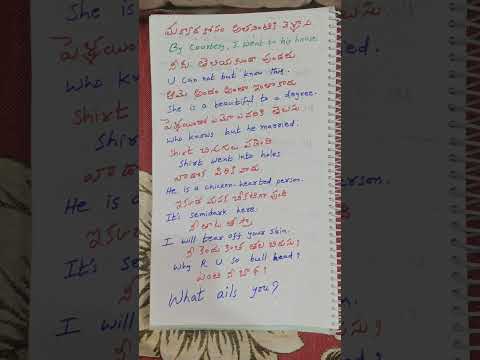 మర్యాద కోసం అతనింటికి వెళ్ళాను
By Courtesy, I went to his house.
నీకు తెలియకుండా వుండదు
U Can not but know this.
ఆమె అందం అంతా ఇంతా కాదు
She is a beautiful to a degree.
పెళ్ళయిందో ఏమో ఎవరికి తెలుసు
Who knows but he married.
Shirt చిరుగులు పడింది
Shirt went into holes
వాడొక పిరికి వాడు
He is a chicken-hearted person.
ఇక్కడ మసక చీకటిగా వుంది
It's semidark here.
నీ తాట తీస్తా
I will tear off your skin.
నీ కెందుకింత తల బిరుసు?
Why R U so bull head?
ఏంటి నీ బాధ?
What ails you?